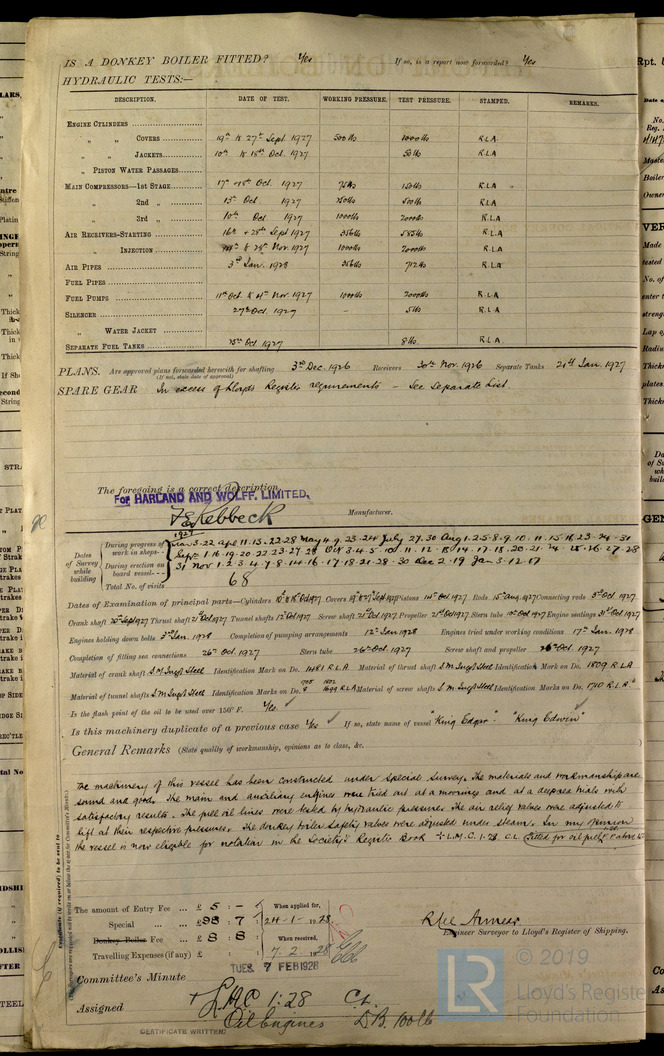 IS A DONKEY BOILER FITTED? Yes If so, is a report now forwarded? Yes
HYDRAULIC TESTS:—
DESCRIPTION. DATE OF TEST. WORKING PRESSURE. TEST PRESSURE. STAMPED. REMARKS.
ENGINE CYLINDERS
" " COVERS 19th & 27th Sept 1927 500 lbs 1000 lbs R.L.A
" " JACKETS 10th & 18th Oct. 1927 50 lb R.L.A
" PISTON WATER PASSAGES
MAIN COMPRESSORS—1st STAGE 17th Oct. 1927 75 lb 150 lb R.L.A
" 2nd " 13th Oct. 1927 500 lb R.L.A
" 3rd " 10th Oct 1927 1000 lb 2000 lb R.L.A
AIR RECEIVERS-STARTING 16th & 28th Sept 1927 356 lb 585 lb R.L.A
" INJECTION & 28th Nov. 1927 1000 lb 2000 lb R.L.A
AIR PIPES 3rd Jan. 1928 356 lb 712 lb R.L.A
FUEL PIPES
FUEL PUMPS 11th Oct & 4th Nov. 1927 1000 lb 2000 lb R.L.A
SILENCER 27th Oct. 1927 – 5 lb R.L.A
" WATER JACKET
SEPARATE FUEL TANKS 25th Oct 1927 8 lb. R.L.A
PLANS. Are approved plans forwarded herewith for shafting 3rd Dec. 1926 Receivers 30th Nov. 1926 Separate Tanks 21st Jan. 1927
(If not, state date of approval)
SPARE GEAR In excess of Lloyds Register requirements – See Separate List.
The foregoing is a correct description,
For HARLAND AND WOLFF, LIMITED.
F E Rebbeck Manufacturer.
Dates of Survey while building
1927
During progress of work in shops - - Jan. 3. 22 Apr 11. 13. 22. 28 May 4. 9. 23. 24 July 27. 30 Aug 1. 2. 5. 8. 9. 10. 11. 15. 16. 23. 24. 31
Sept. 1. 16. 19. 20. 22. 23. 27. 28 Oct 3. 4. 5. 10. 11. 12. 13. 14. 17. 18. 20. 21. 24. 25. 26. 27. 28
During erection on board vessel - - - 31 Nov 1. 2. 3. 4. 7. 8. 14. 16. 17. 18. 21. 28. 30 Dec 2. 19 Jan 3. 12. 17
Total No. of visits 68
Dates of Examination of principal parts—Cylinders 10th & 18th Oct 1927. Covers 19th & 27th Sept 1927 Pistons 14th Oct. 1927 Rods 15th Aug. 1927 Connecting rods 5th Oct. 1927
Crank shaft 20th Sept 1927 Thrust shaft 21st Oct 1927 Tunnel shafts 12th Oct 1927 Screw shaft 21st Oct 1927 Propeller 21st Oct 1927 Stern tube 10th Oct 1927 Engine seatings 31st Oct 1927
Engines holding down bolts 3rd Jan. 1928 Completion of pumping arrangements 12th Jan 1928 Engines tried under working conditions 17th Jan. 1928
Completion of fitting sea connections 26th Oct. 1927 Stern tube 26th Oct 1927 Screw shaft and propeller 26th Oct. 1927
Material of crank shaft S.M. Ingt Steel Identification Mark on Do. 1481 R.L.A Material of thrust shaft S.M. Ingt Steel Identification Mark on Do. 1809 R.L.A
Material of tunnel shafts S.M. Ingt Steel Identification Marks on Do. 1699 R.L.A Material of screw shafts S.M. Ingt Steel Identification Marks on Do. 1710 R.L.A.
Is the flash point of the oil to be used over 150° F. Yes
Is this machinery duplicate of a previous case Yes If so, state name of vessel "King Edgar". "King Edwin"
General Remarks (State quality of workmanship, opinions as to class, &c.
The machinery of this vessel has been constructed under Special Survey. The materials and workmanship are
sound and good. The main and auxiliary engines were tried out at a mooring and at a deepsea trials with
satisfactory results. The fuel oil lines were tested by hydraulic pressure. The air relief valves were adjusted to
lift at their respective pressures. The donkey boiler Safety valves were adjusted under steam. In my opinion
the vessel is now eligible for notation in the Society's Register Book + L.M.C. 1.28. C.L. (Fitted for oil fuel F.P. above 150)
The amount of Entry Fee ... £ 5 : – When applied for,
Special ... £ 98 : 7 24.1.1928
Donkey Boiler Fee ... £ 8 : 8 When received,
Travelling Expenses (if any) £ 7.2.1928
Engineer Surveyor to Lloyd's Register of Shipping.
TUES. 7 FEB 1928
Committee's Minute
Assigned + L.M.C 1:28 C.L.
Oil Engines D.B. 100 lb
CERTIFICATE WRITTEN
LR © 2019
Lloyd's Register
Foundation